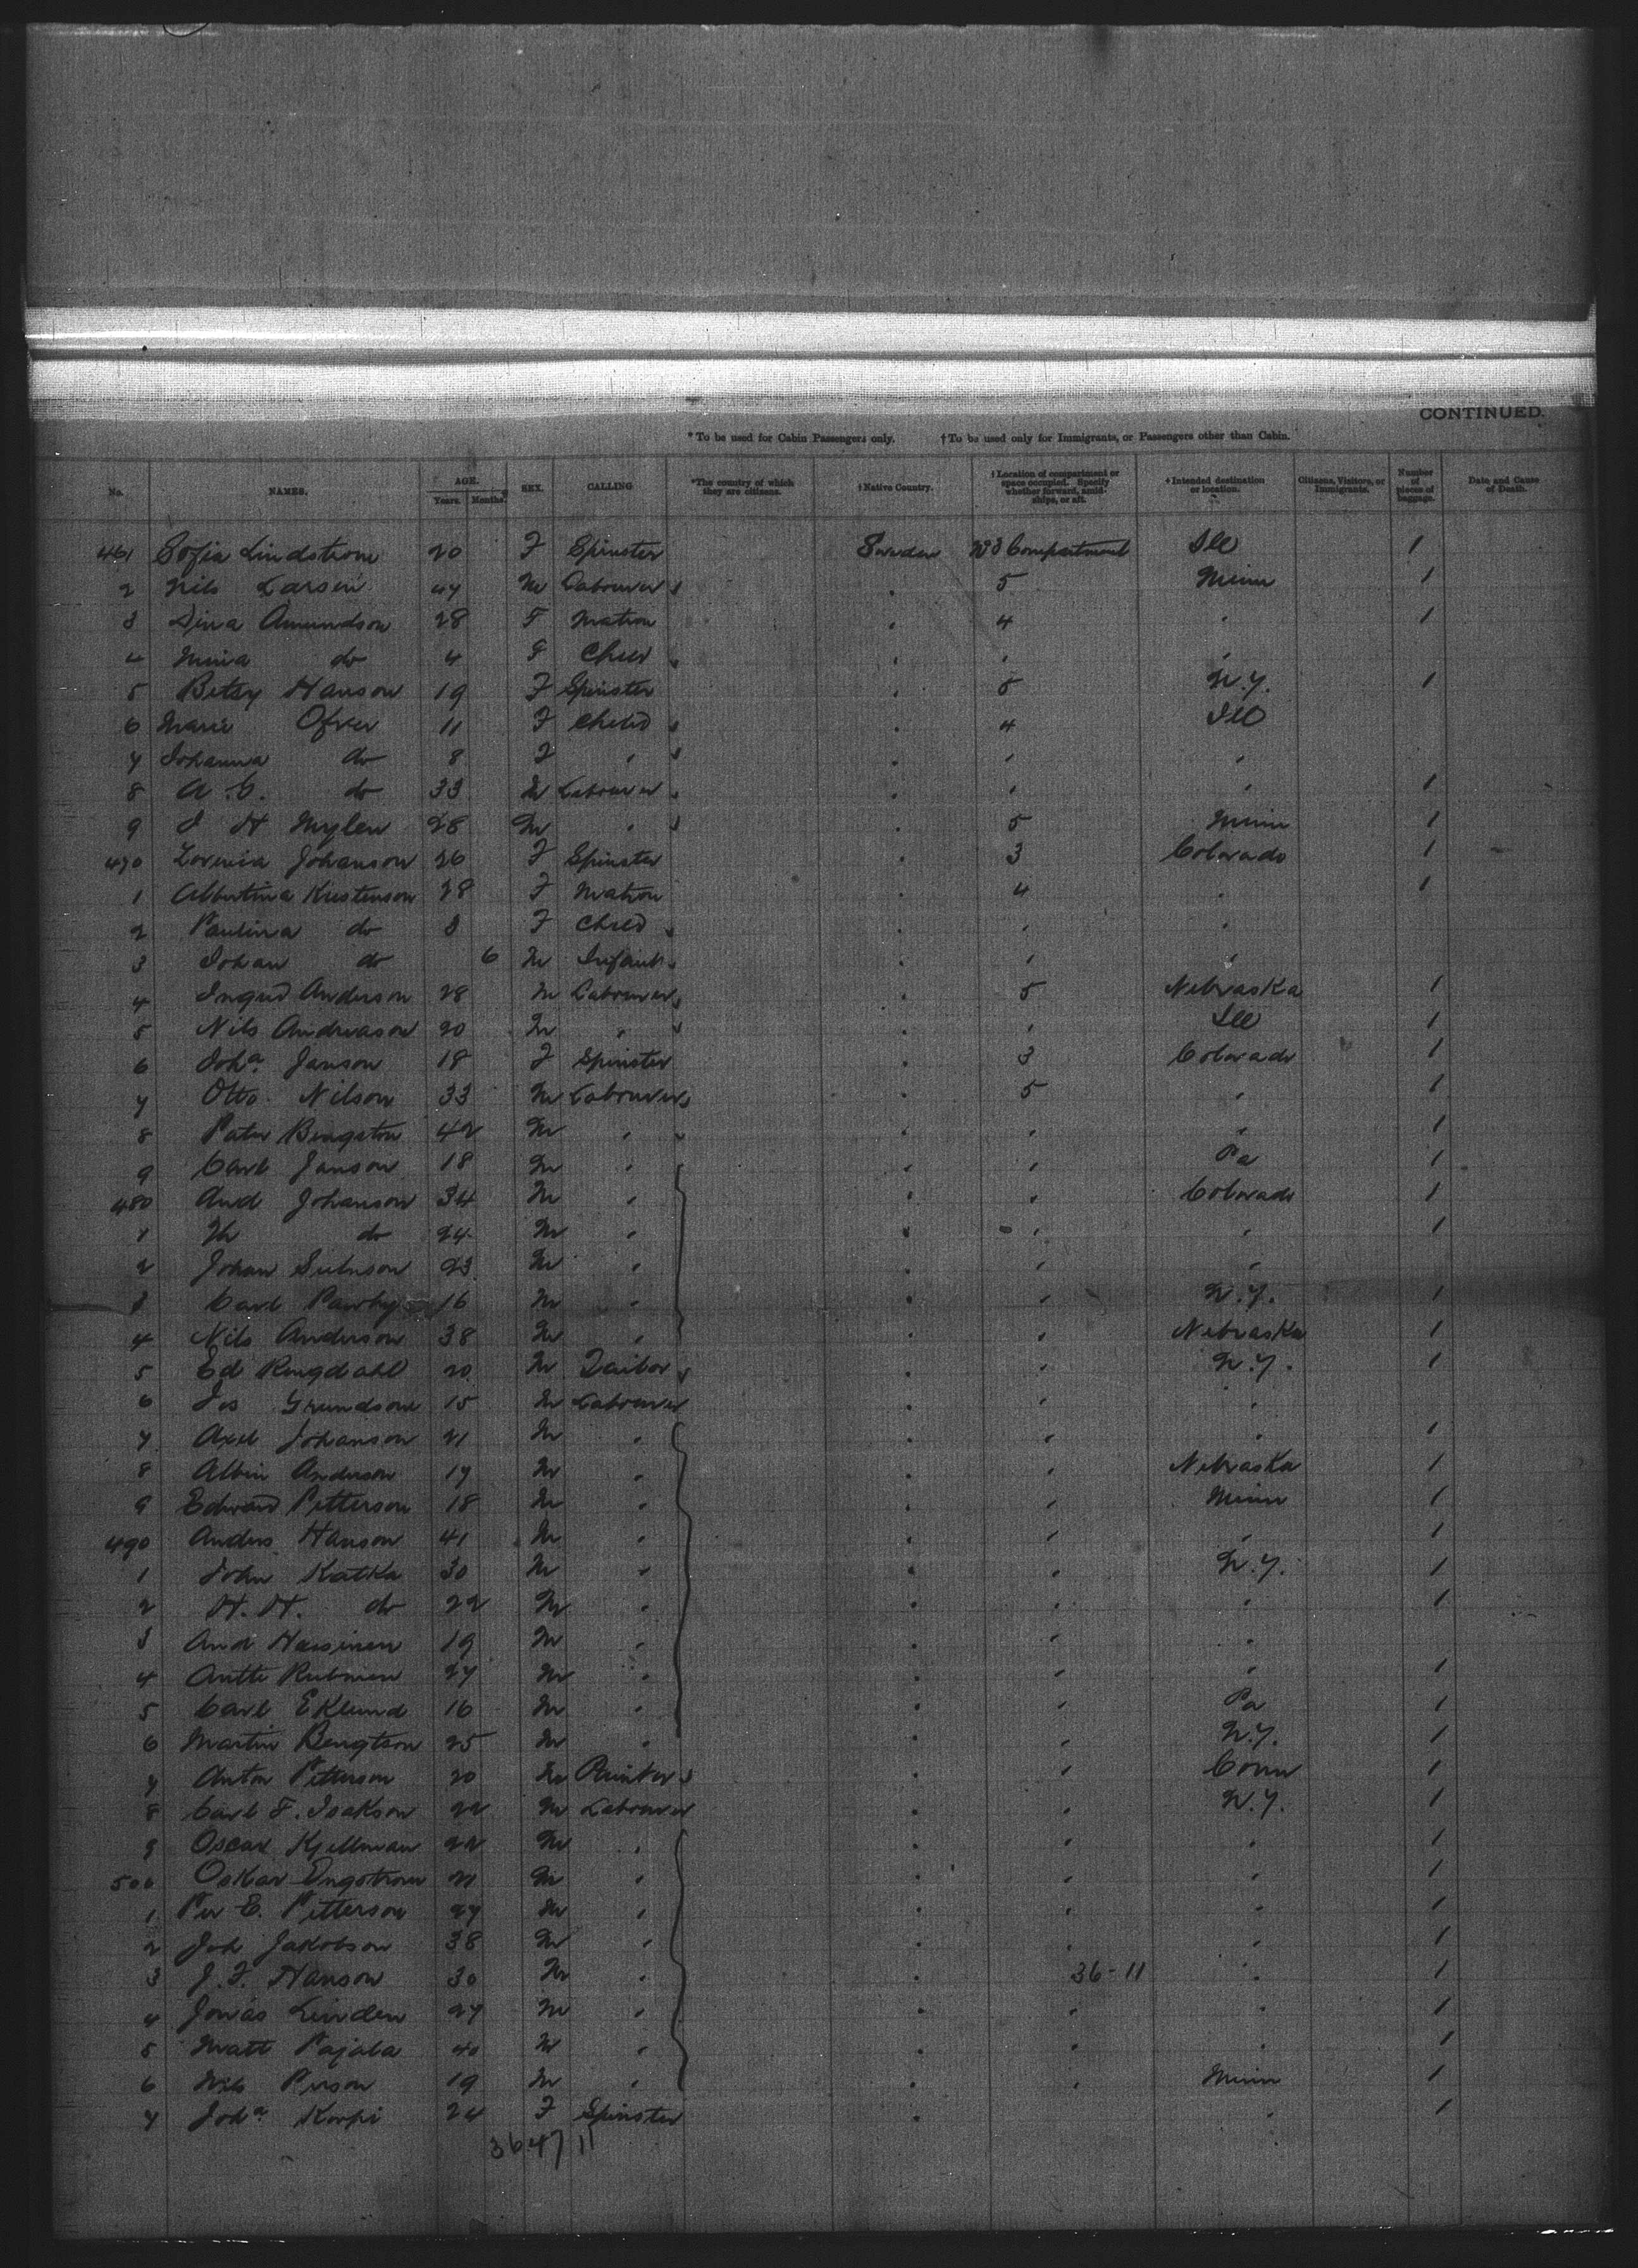 CONTINUED.
*To be used for Cabin Passengers only. †To be used only for Immigrants, or Passengers other than Cabin.
No. NAMES. AGE. Years. Months. SEX. CALLING *The country of which they are citizens. †Native Country. †Location of compartment or space occupied. Specify whether forward, amidships, or aft. †Intended destination or location. Citizens, Visitors, or Immigrants. Number of pieces of baggage. Date and Cause of Death.
461 Sofia Lindstrom 20 F Spinster Sweden Compartment Ill 1
2 Nils Larsen 47 M Labourer " 5 Minn 1
3 Dina Amundson 28 F Matron " 4 " 1
4 Mina do 4 F Child " " "
5 Betsy Hanson 19 F Spinster " 5 N.Y. 1
6 Marie Ofver 11 F Child " 4 Ill
7 Johanna do 8 F " " " "
8 A. C. do 33 M Labourer " " " 1
9 J H Mylen 28 M " " 5 Minn 1
470 Lovinia Johanson 26 F Spinster " 3 Colorado 1
1 Albertina Kristenson 28 F Matron " 4 " 1
2 Paulina do 3 F Child " " "
3 Johan do 6 M Infant " " "
4 Ingrid Anderson 28 M Labourer " 5 Nebraska 1
5 Nils Andreason 20 M " " " Ill 1
6 Joha Janson 18 F Spinster " 3 Colorado 1
7 Otto Nilson 33 M Labourer " 5 " 1
8 Peter Bengston 42 M " " " " 1
9 Carl Janson 18 M " " " Pa 1
480 And Johanson 34 M " " " Colorado 1
1 do 24 M " " " " 1
2 Johan 23 M " " " "
3 Carl 16 M " " " N.Y. 1
4 Nils Anderson 38 M " " " Nebraska 1
5 Ed Ringdahl 20 M Tailor " " N.Y. 1
6 Jos Grundson 15 M Labourer " " "
7 Axel Johanson 21 M " " " " 1
8 Albin Anderson 17 M " " " Nebraska 1
9 Edward Petterson 18 M " " " Minn 1
490 Anders Hanson 41 M " " " " 1
1 John Katka 30 M " " " N.Y. 1
2 H. H. do 22 M " " " " 1
3 And 19 M " " " "
4 Antti 27 M " " " " 1
5 Carl Eklund 16 M " " " Pa 1
6 Martin Bengtson 25 M " " " N.Y. 1
7 Anton Petterson 20 M Painter " " Conn 1
8 Carl F. Isakson 22 M Labourer " " N.Y. 1
9 Oscar Kjellman 22 M " " " " 1
500 Oskar Engstrom 21 M " " " " 1
1 Per E. Petterson 27 M " " " " 1
2 Joh Jakobson 38 M " " " " 1
3 J. F. Hanson 30 M " " 36-11 " 1
4 Jonas Linden 27 M " " " " 1
5 Matt Pajala 40 M " " " " 1
6 Nils Person 19 M " " " Minn 1
7 Joha Korpi 24 F Spinster " " 1
3647 11